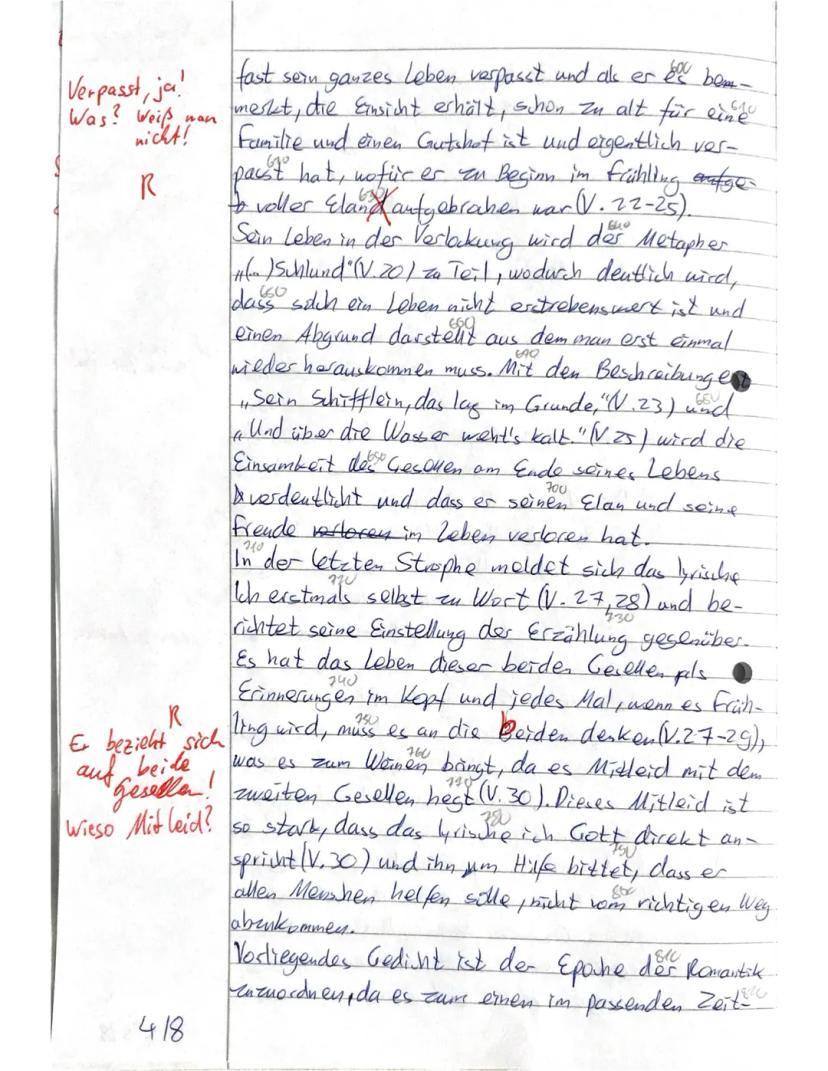 Verpasst, ja!
Was? Weiß man
nicht!
R
fast sein ganzes Leben verpasst und als er es bem-
merkt, die Einsicht erhält, schon zu alt für eine
Familie und einen Gutshof ist und eigentlich ver-
passt hat, wofür er zu Beginn im Frühling aufge-
voller Elan aufgebrahen war (V. 22-25).
Sein Leben in der Verlockung wird der Metapher
„(...)Schlund"(V.20) zu Teil, wodurch deutlich wird,
dass solch ein Leben nicht erstrebenswert ist und
einen Abgrund darstellt aus dem man erst einmal
wieder herauskommen muss. Mit den Beschreibungen
„Sein Schifflein, das lag im Grunde,"(V.23) und
„Und über die Wasser weht's kalt."(V.25) wird die
Einsamkeit des Gesellen am Ende seines Lebens
verdeutlicht und dass er seinen Elan und seine
Freude verloren im Leben verloren hat.
In der letzten Strophe meldet sich das lyrische
Ich erstmals selbst zu Wort (V. 27,28) und be-
richtet seine Einstellung der Erzählung gegenüber.
Es hat das Leben dieser beiden Gesellen als
Erinnerungen im Kopf und jedes Mal, wenn es Früh-
ling wird, muss es an die beiden denken (V.27-29),
was es zum Weinen bringt, da es Mitleid mit dem
zweiten Gesellen hegt (V.30). Dieses Mitleid ist
so stark, dass das lyrische ich Gott direkt an-
spricht (V.30) und ihn um Hilfe bittet, dass er
allen Menschen helfen solle, nicht vom richtigen Weg
abzukommen.
Vorliegendes Gedicht ist der Epoche der Romantik
zuzuordnen, da es zum einen im passenden Zeit-
R
Er bezieht sich
auf beide
Gesellen!
Wieso Mitleid?
4/8
600
610
620
630
640
650
660
670
680
690
700
710
720
730
740
750
760
770
780
790
800
810
820